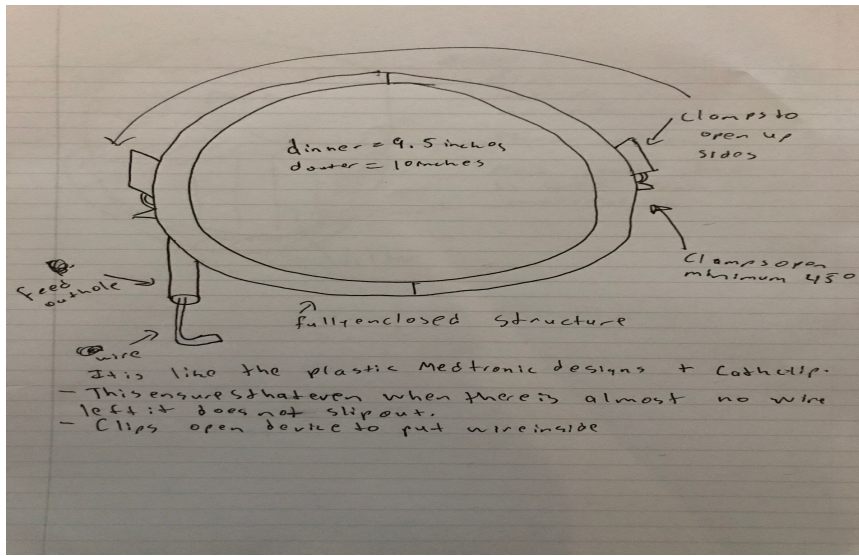 dinner = 9.5 inches
douter = 10 inches
Clamps to
open up
sides
Clamps open
minimum 45°
feed
outhole
fully enclosed structure
wire
It is like the plastic Medtronic designs + Cathclip.
- This ensures that even when there is almost no wire
left it does not slip out.
- Clips open device to put wire inside